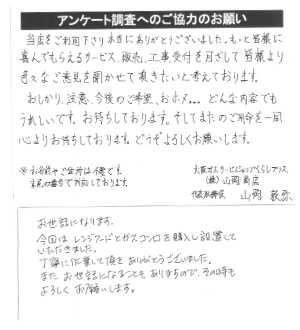 アンケート調査へのご協力のお願い
当店をご利用下さり本当にありがとうございました。もっと皆様に
喜んでもらえるサービス、販売、工事受付を目ざして皆様より
色々なご意見を聞かせて頂きたいと考えております。
おしかり、注意、今後のご希望、おホメ... どんな内容でも
うれしいです。お待ちしております。そしてまたのご用命を一同
心よりお待ちしております。どうぞよろしくお願いします。
※お名前やご住所は不要です。
大阪ガスサービスショップくらしプラス
(株)山岡商店
代表取締役 山岡
お世話になります。
今回はレンジフードとガスコンロを購入し設置して
いただきました。
丁寧に作業して頂きありがとうございました。
またお世話になることもありますので、その時も
よろしくお願いします。